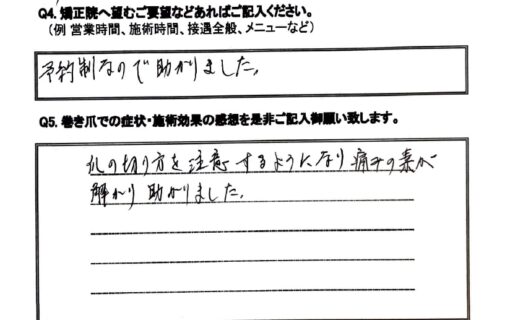 Q4. 矯正院へ望むご要望などあればご記入ください。
（例 営業時間、施術時間、接遇全般、メニューなど）
予約制なので助かりました。
Q5. 巻き爪での症状・施術効果の感想を是非ご記入御願い致します。
爪の切り方を注意するようになり痛みの素が
解かり助かりました。